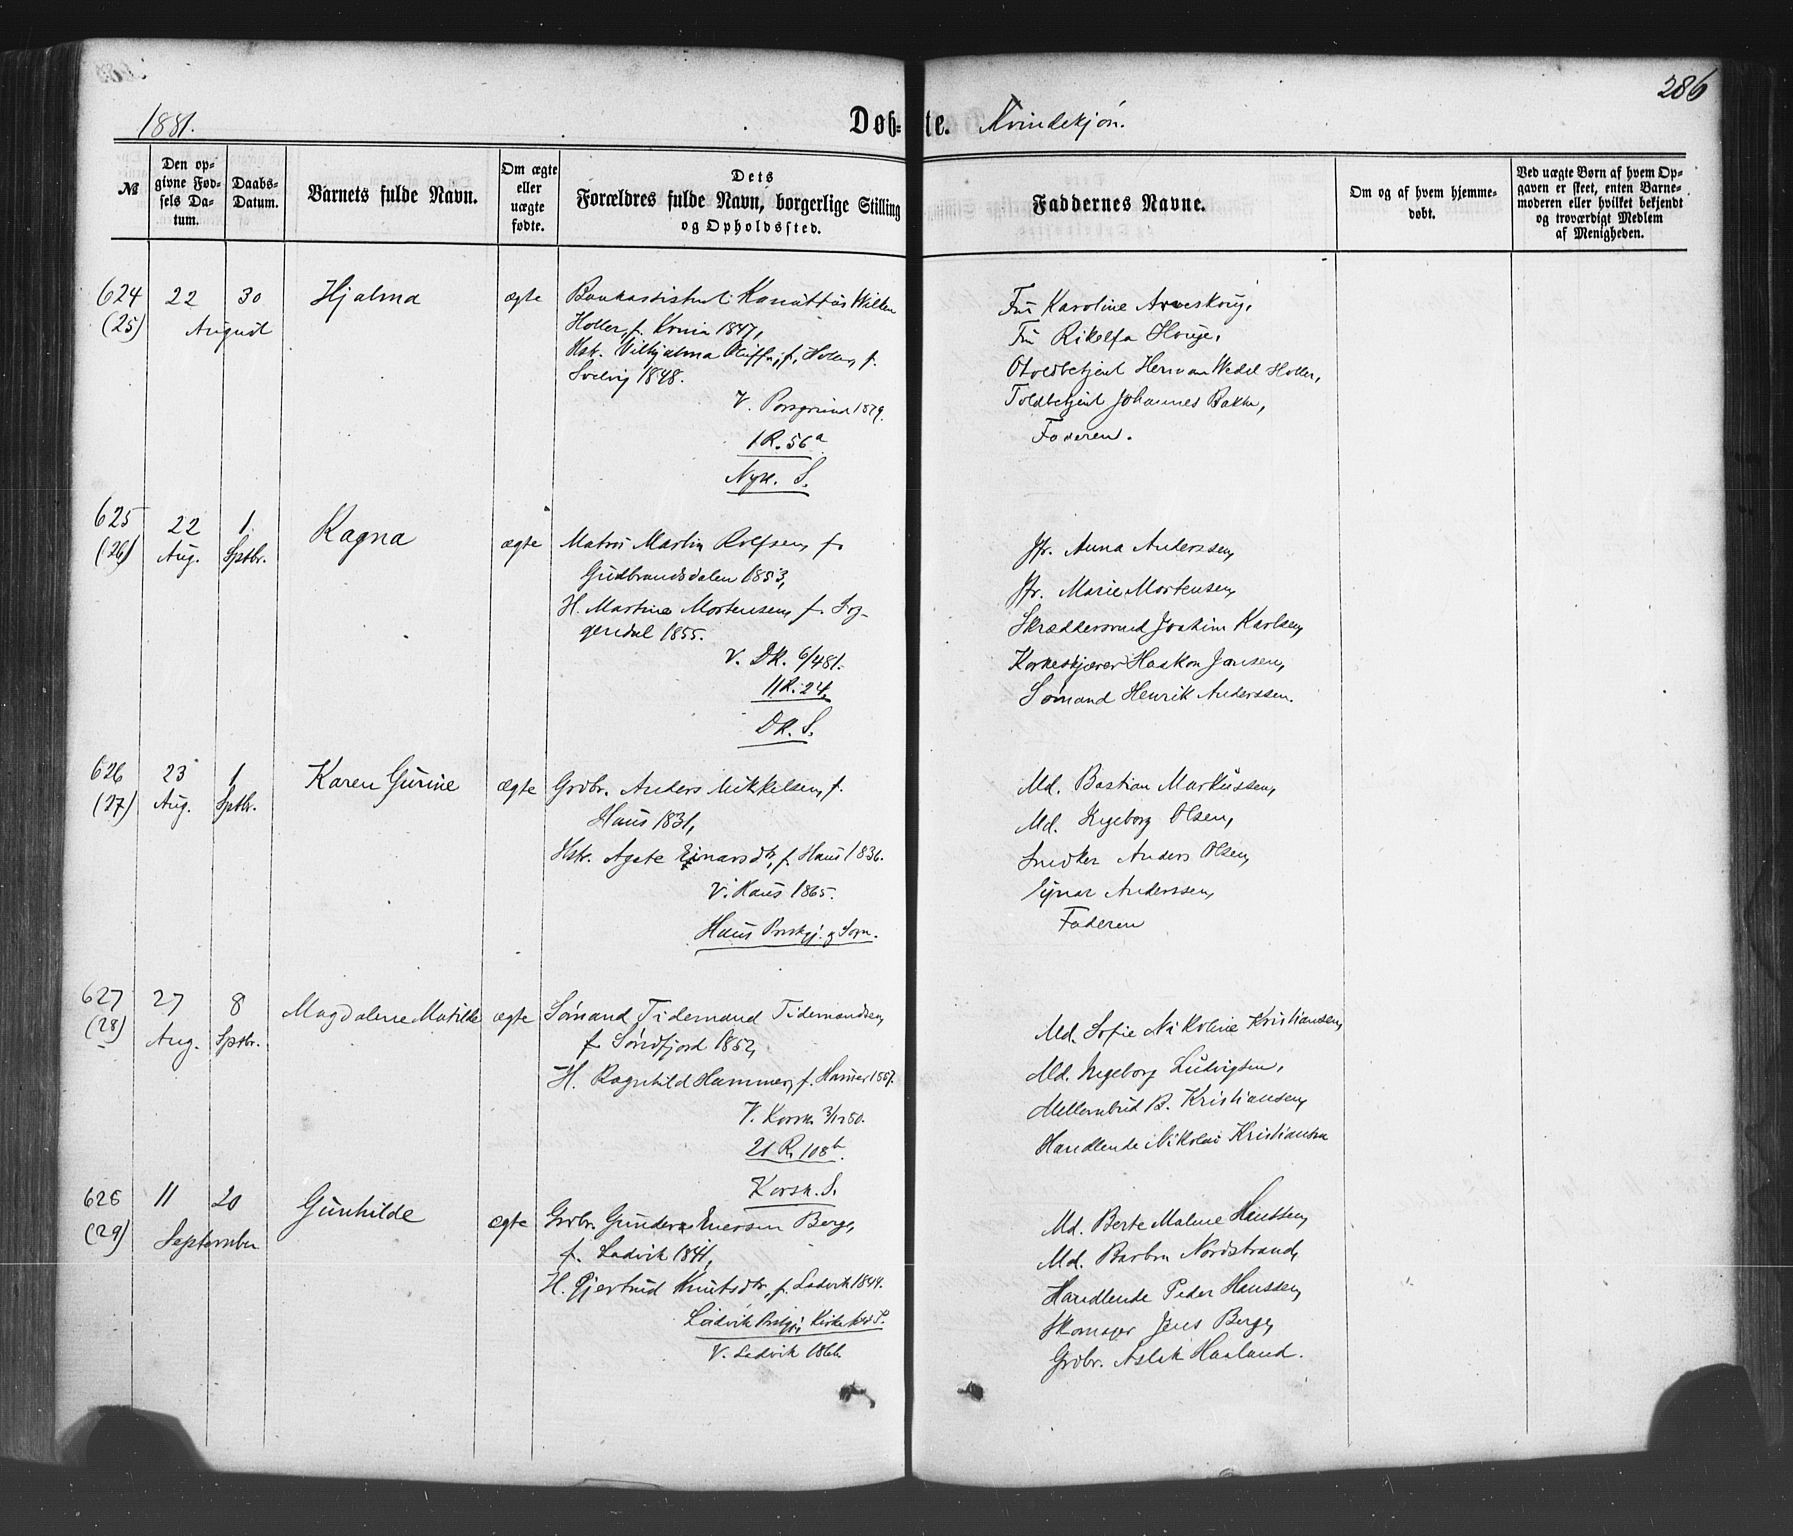 286
1881.
Døb-te. Kvindekjøn.
№
Den opgivne Fødsels Datum.
Daabs-Datum.
Barnets fulde Navn.
Om ægte eller uægte fødte.
Dets Forældres fulde Navn, borgerlige Stilling og Opholdssted.
Faddernes Navne.
Om og af hvem hjemmedøbt.
Ved uægte Børn af hvem Opgaven er skeet, enten Barnemoderen eller hvilket bekjendt og troværdigt Medlem af Menigheden.
624 22 30 Hjalma ægte
(25) August
Bankassistent Wilken
Holler, f. 1847,
Hstr. Vilhjelma f. Holler, f.
Svelvig 1848.
V. Porsgrund 1879.
1 R. 56a
Nyk. S.
Fru Karoline
Fru Rikelfa Houge,
Herman Wedel Holler,
Toldbetjent Johannes Bakke,
Faderen.
625 22 1 Ragna ægte
(26) Aug. Sptbr.
Matros Martin Rolfsen, f.
Gudbrandsdalen 1853,
H. Martine Mortensen, f. Sog-
gendal 1855.
V. DK. 6/4 81.
11 R. 24,
DK. S.
Jfr. Anna Anderssen,
Jfr. Marie Mortensen,
Skræddersvend Joakim Karlsen,
Korkeskjærer Haakon Jansen,
Sømand Henrik Anderssen.
626 23 1 Karen Gurine ægte
(27) Aug. Sptbr.
Grdbr. Anders Mikkelsen, f.
Haus 1831,
Hstr. Agate Einarsdtr, f. Haus 1836.
V. Haus 1865.
Haus Prstgj. og Sogn.
Md. Bastian Markussen,
Md. Ingeborg Olsen,
Snedker Anders Olsen,
Ejnar Anderssen,
Faderen
627 27 8 Magdalene Matilde ægte
(28) Aug. Sptbr.
Sømand Tidemand Tidemandsen,
f. Søndfjord 1852,
H. Ragnhild Hammer, f. Hamer 1857.
V. Korsk.
21 R. 108b.
Korsk. S.
Md. Sofie Nikoline Kristiansen,
Md. Ingeborg Ludvigsen,
Møllersvend B. Kristiansen,
Handlende Nikolai Kristiansen
628 11 20 Gunhilde ægte
(29) September
Grdbr. Gunder Iversen Berge,
f. Ladvik 1841,
H. Gjertrud Knutsdtr, f. Ladvik 1844.
Ladvik Prstgj. S.
V. Ladvik 1866.
Md. Berte Malene Hanssen,
Md. Barbra Nordstrand,
Handlende Peder Hanssen,
Skomager Jens Berge,
Grdbr. Aslak Haaland.